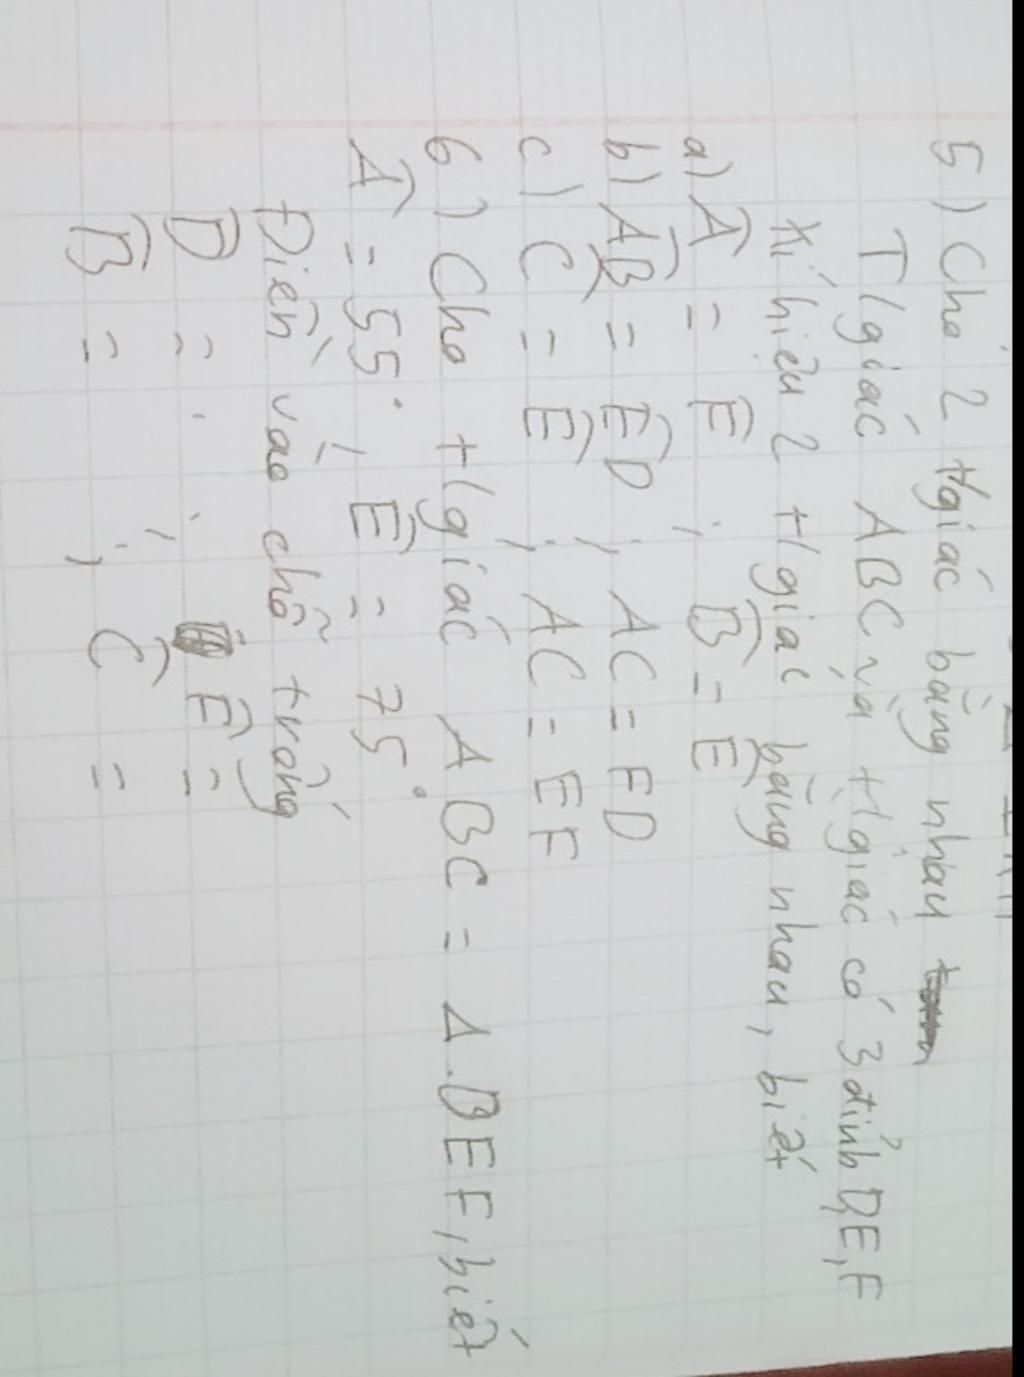 5) Cho 2 t/giác bằng nhau
T/giác ABC và t/giác có 3 đỉnh D,E,F
Kí hiệu 2 t/giác bằng nhau, biết
a) Â = F̂ ; B̂ = Ê
b) AB = ED ; AC = FD
c) Ĉ = Ê ; AC = EF
6) Cho t/giác ABC = Δ.DEF, biết
Â = 55° ; Ê = 75°
Điền vào chỗ trống
D̂ = ; F̂ =
B̂ = ; Ĉ =